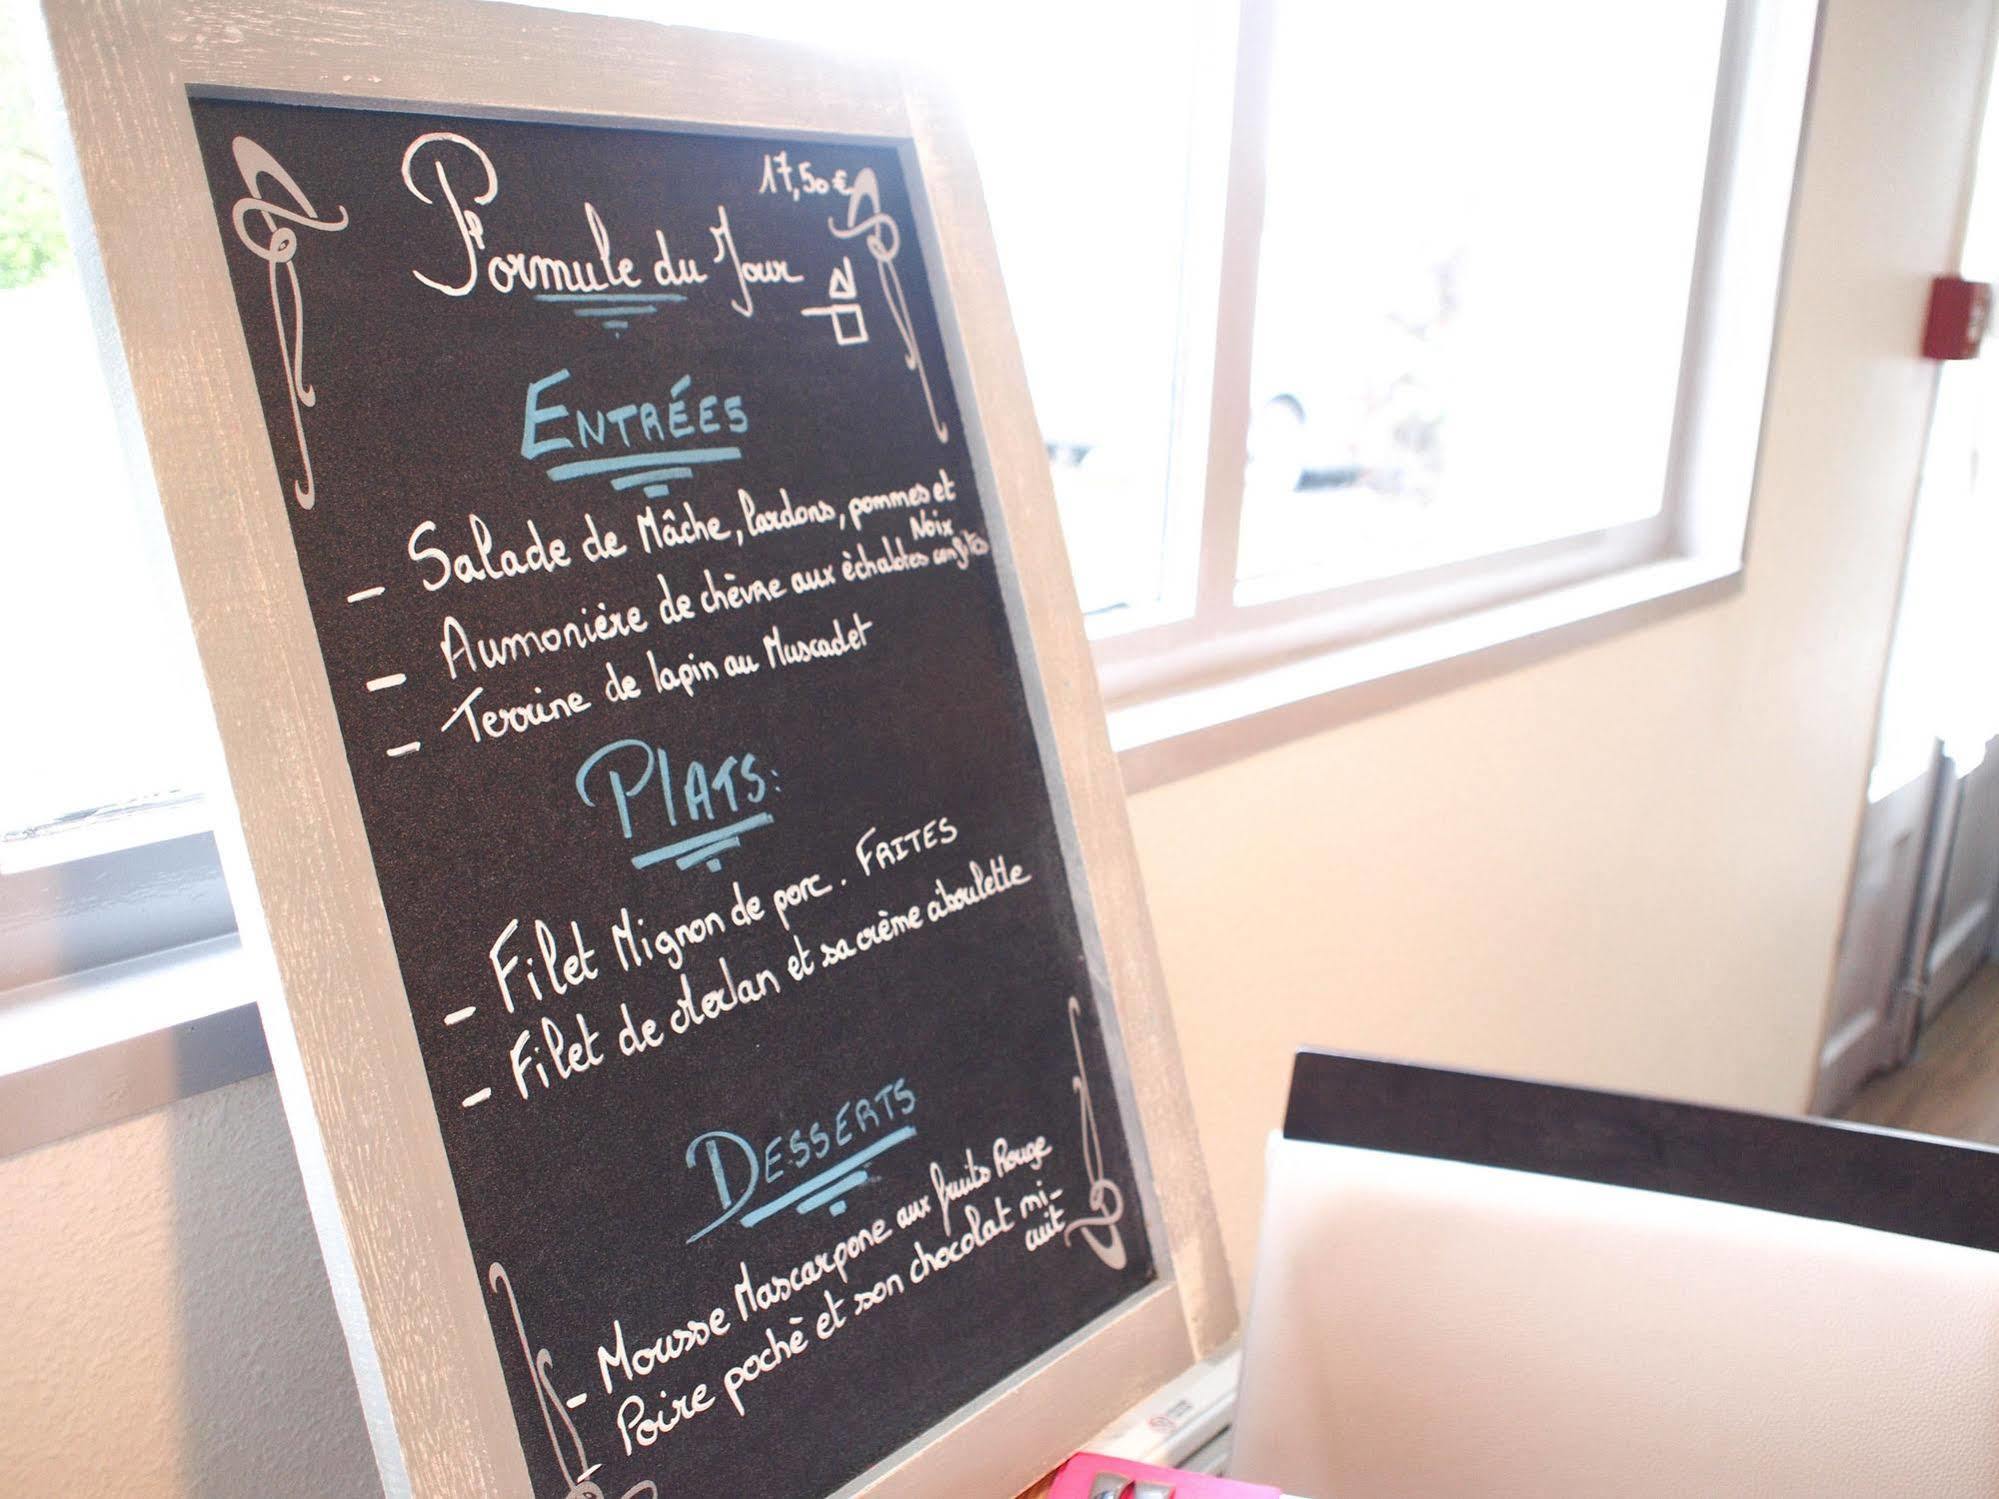 17,50€
Formule du Jour
ENTRÉES
- Salade de Mâche, lardons, pommes et
Noix
- Aumonière de chèvre aux èchalotes confites
- Terrine de lapin au Muscadet
PLATS:
- Filet Mignon de porc. FRITES
- Filet de Merlan et sa crème ciboulette
DESSERTS
- Mousse Mascarpone aux fruits Rouge
- Poire pochè et son chocolat mi-
cuit